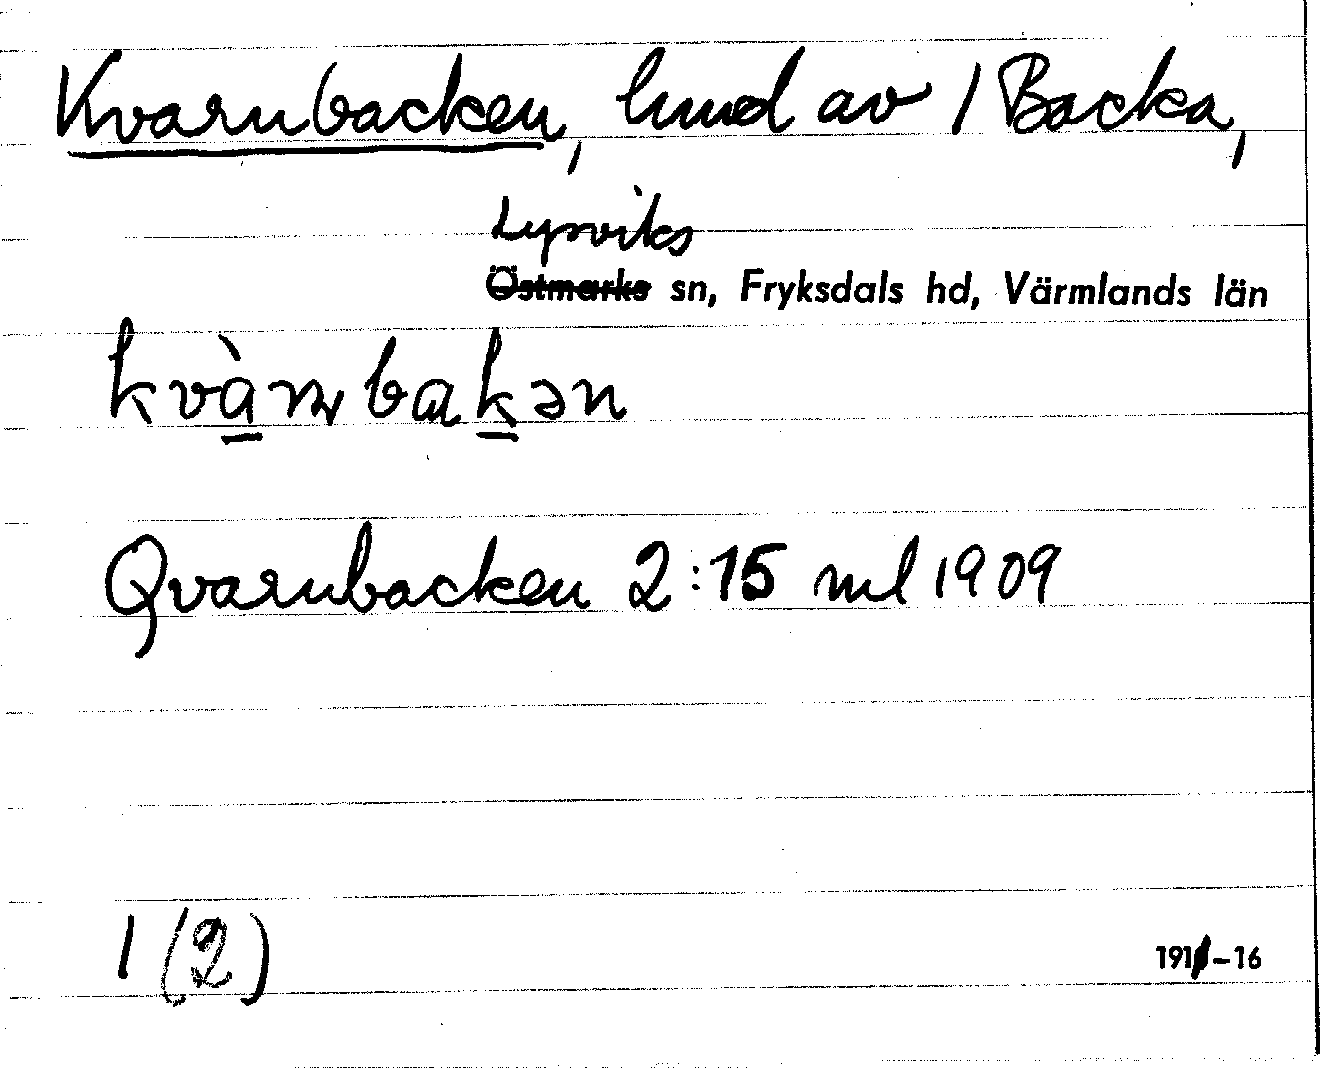 Kvarnbacken, hmd av 1 Backa,
Lysviks
Östmarks sn, Fryksdals hd, Värmlands län
kvàɳbakən
Qvarnbacken 2:15 ml 1909
1 (2)
1911–16